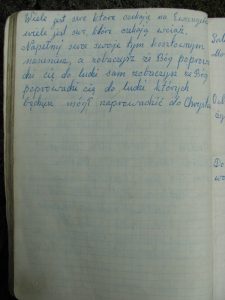 Wiele jest serc które czekają na Ewangelię
wiele jest serc które czekają wciąż.
Napełnij serce swoje tym kosztownym
nasieniem, a zobaczysz że Bóg poprowa
dzi cię do ludzi sam zobaczysz że Bóg
poprowadzi cię do ludzi których
będziesz mógł naprowadzić do Chrystu